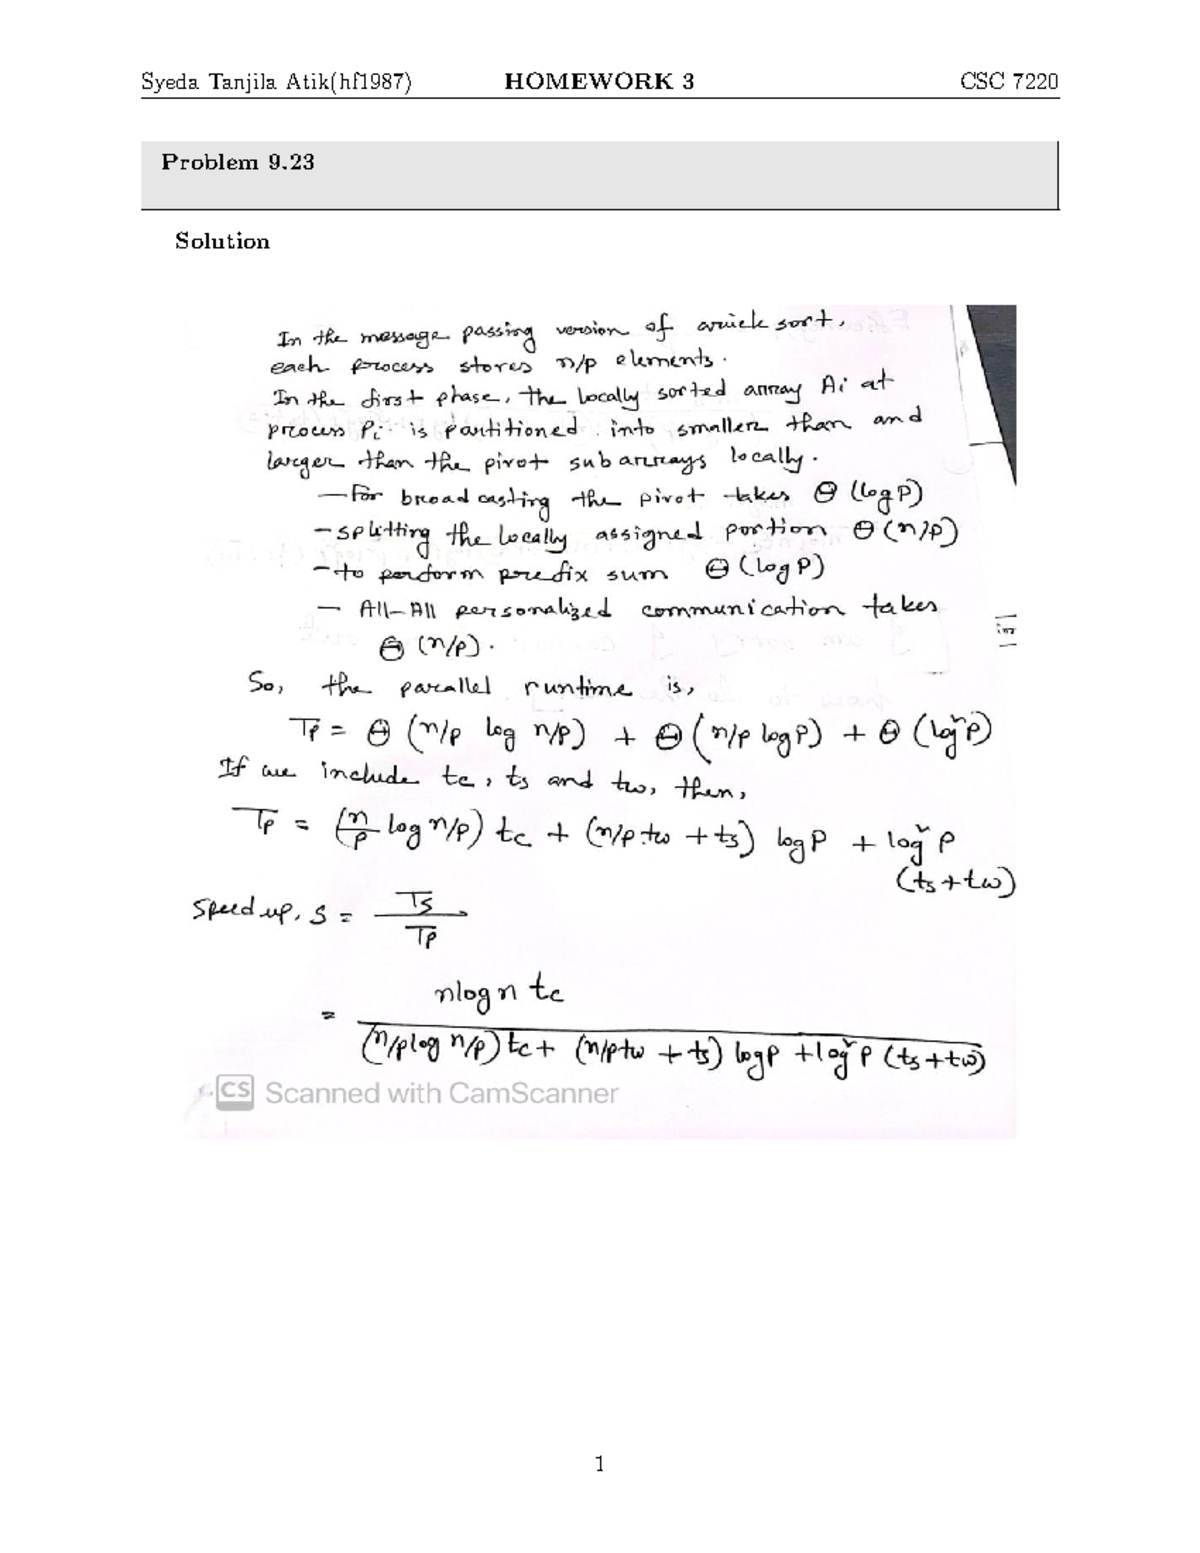 Syeda Tanjila Atik(hf1987) HOMEWORK 3 CSC 7220
Problem 9.23
Solution
In the message passing version of quick sort,
each process stores n/p elements.
In the first phase, the locally sorted array Ai at
process Pi is partitioned into smaller than and
larger than the pivot subarrays locally.
— For broadcasting the pivot takes Θ (log P)
— splitting the locally assigned portion Θ (n/p)
— to perform prefix sum Θ (log P)
— All-All personalized communication takes
Θ (n/p).
So, the parallel runtime is,
Tp = Θ (n/p log n/p) + Θ (n/p log P) + Θ (log² p)
If we include tc, ts and tw, then,
Tp = (n/p log n/p) tc + (n/p tw + ts) log P + log² P
(ts + tw)
Speed up, S = Ts / Tp
= nlogn tc / (n/p log n/p) tc + (n/p tw + ts) log P + log² P (ts + tw)
CS Scanned with CamScanner
1